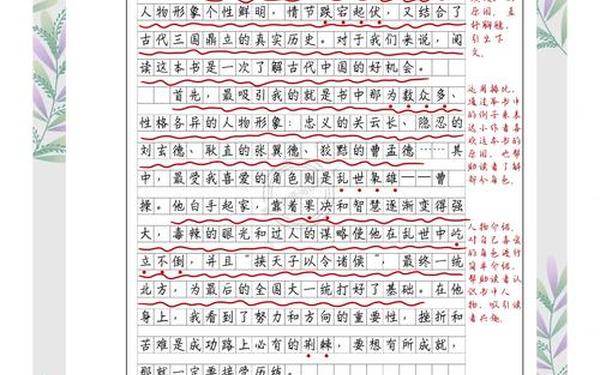 人物形象个性鲜明，情节跌宕起伏，又结合了
古代三国鼎立的真实历史。对于我们来说，阅
读这本书是一次了解古代中国的好机会。
首先，最吸引我的就是书中那为数众多、
性格各异的人物形象：忠义的关云长、隐忍的
刘玄德、耿直的张翼德、狡黠的曹孟德……其
中，最受我喜爱的角色则是乱世枭雄——曹
操。他白手起家，靠着果决和智慧逐渐变得强
大，毒辣的眼光和过人的谋略使他在乱世中屹
立不倒，并且“挟天子以令诸侯”，最终一统
北方，为最后的全国大一统打好了基础。在他
身上，我看到了努力和方向的重要性，挫折和
苦难是成功路上必有的荆棘，要想有所成就，
那就一定要接受历练。
原因，并
引出下
文。
运用排比，
通过举书中
的例子来表
达小作者喜
欢这本书的
原因，也帮
助读者了解
部分角色。
人物介绍。
对自己喜爱
的角色进行
简单介绍，
帮助读者认
识书中人
物，吸引读
者兴趣。